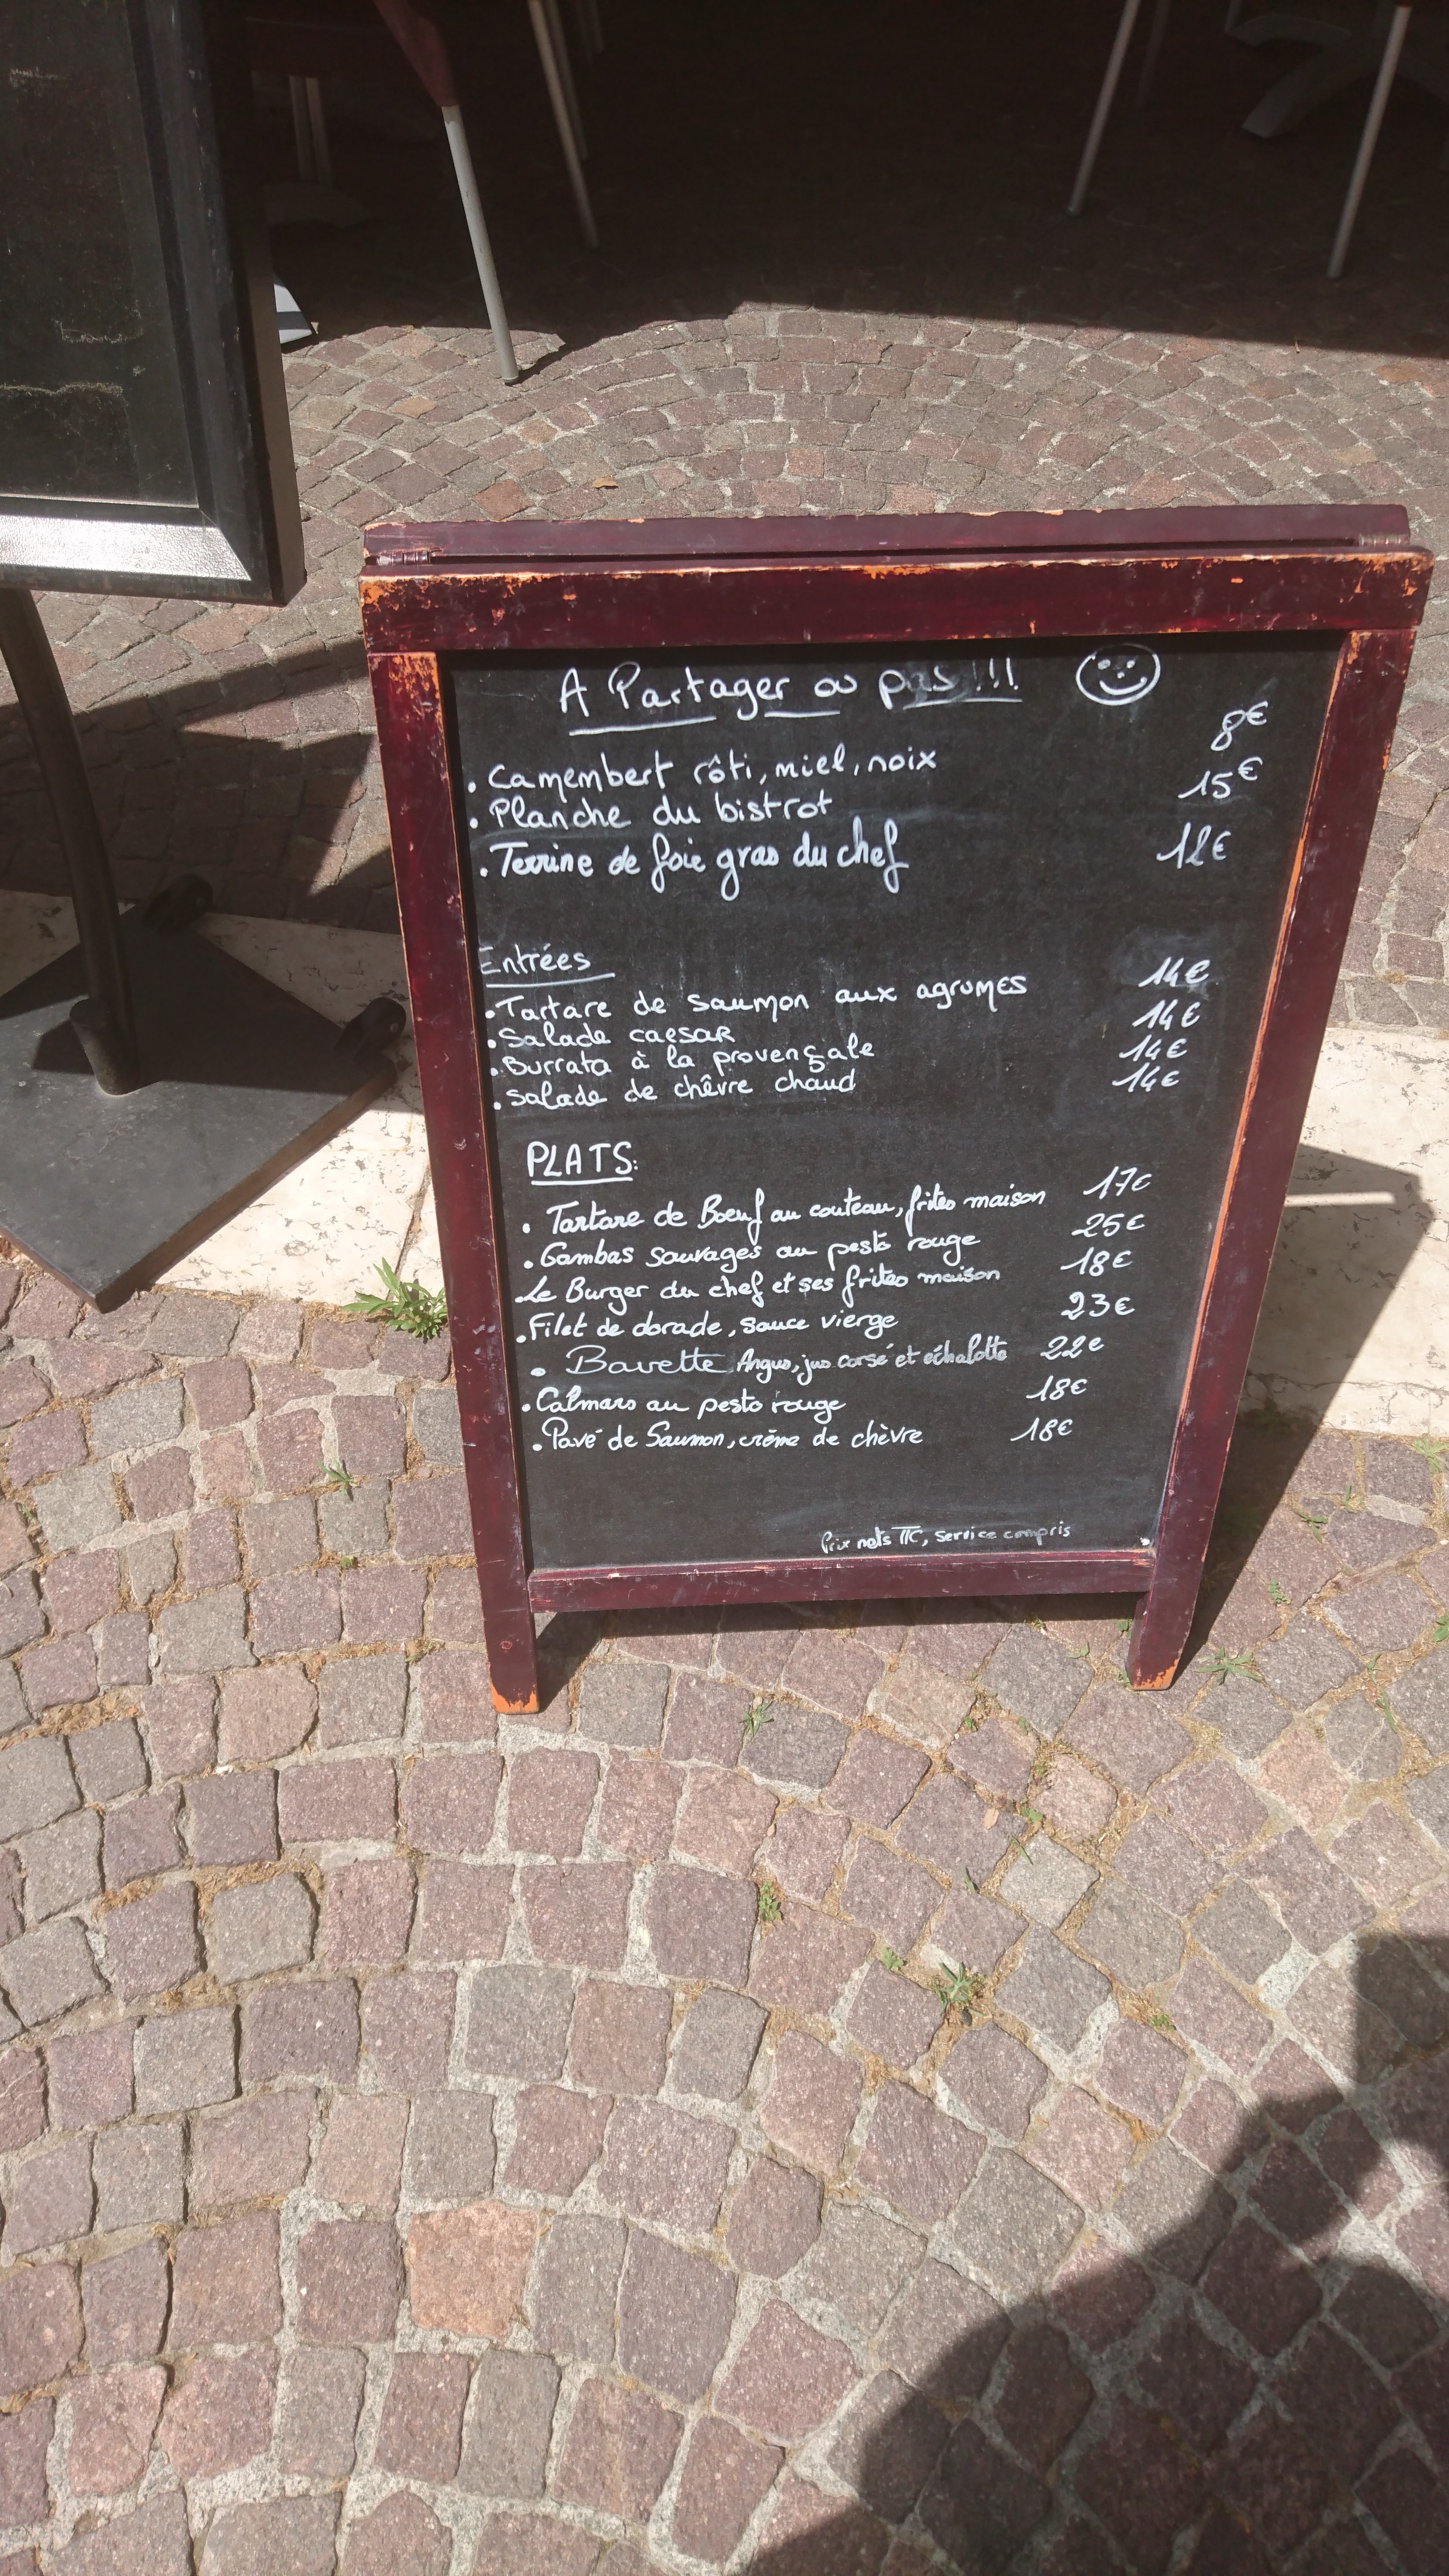 A Partager ou pas !!!
. Camembert rôti, miel, noix 8€
. Planche du bistrot 15€
. Terrine de foie gras du chef 12€
Entrées
. Tartare de saumon aux agrumes 14€
. Salade caesar 14€
. Burrata à la provençale 14€
. Salade de chêvre chaud 14€
PLATS:
. Tartare de Boeuf au couteau, frites maison 17€
. Gambas sauvages au pesto rouge 25€
. Le Burger du chef et ses frites maison 18€
. Filet de dorade, sauce vierge 23€
. Bavette Angus, jus corsé et échalotte 22€
. Calmars au pesto rouge 18€
. Pavé de Saumon, crème de chèvre 18€
Prix nets TTC, service compris